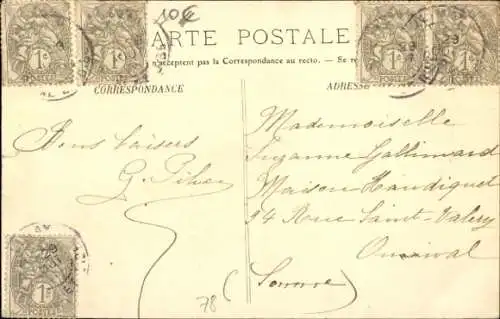 10€
CARTE POSTALE
n'acceptent pas la Correspondance au recto. — Se re
CORRESPONDANCE
ADRESSE
1c
POSTES
1c
POSTES
1c
POSTES
1c
POSTES
Bons baisers
G.
Mademoiselle
Suzanne Gallimard
Maison Handiquet
24 Rue Saint-Valery
Onival
(Somme)
1c
POSTES
78